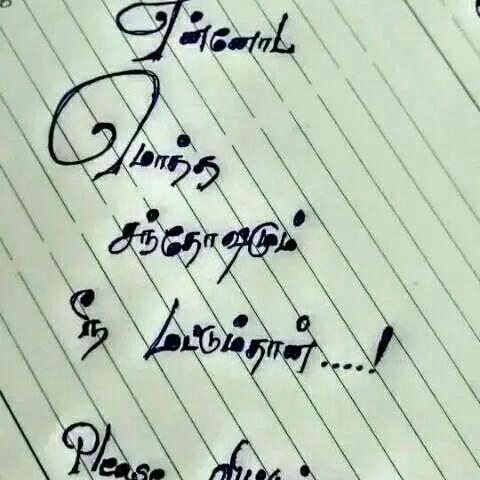 என்னோட
மொத்த
சந்தோஷமும்
நீ மட்டும்தான்.....!
Please